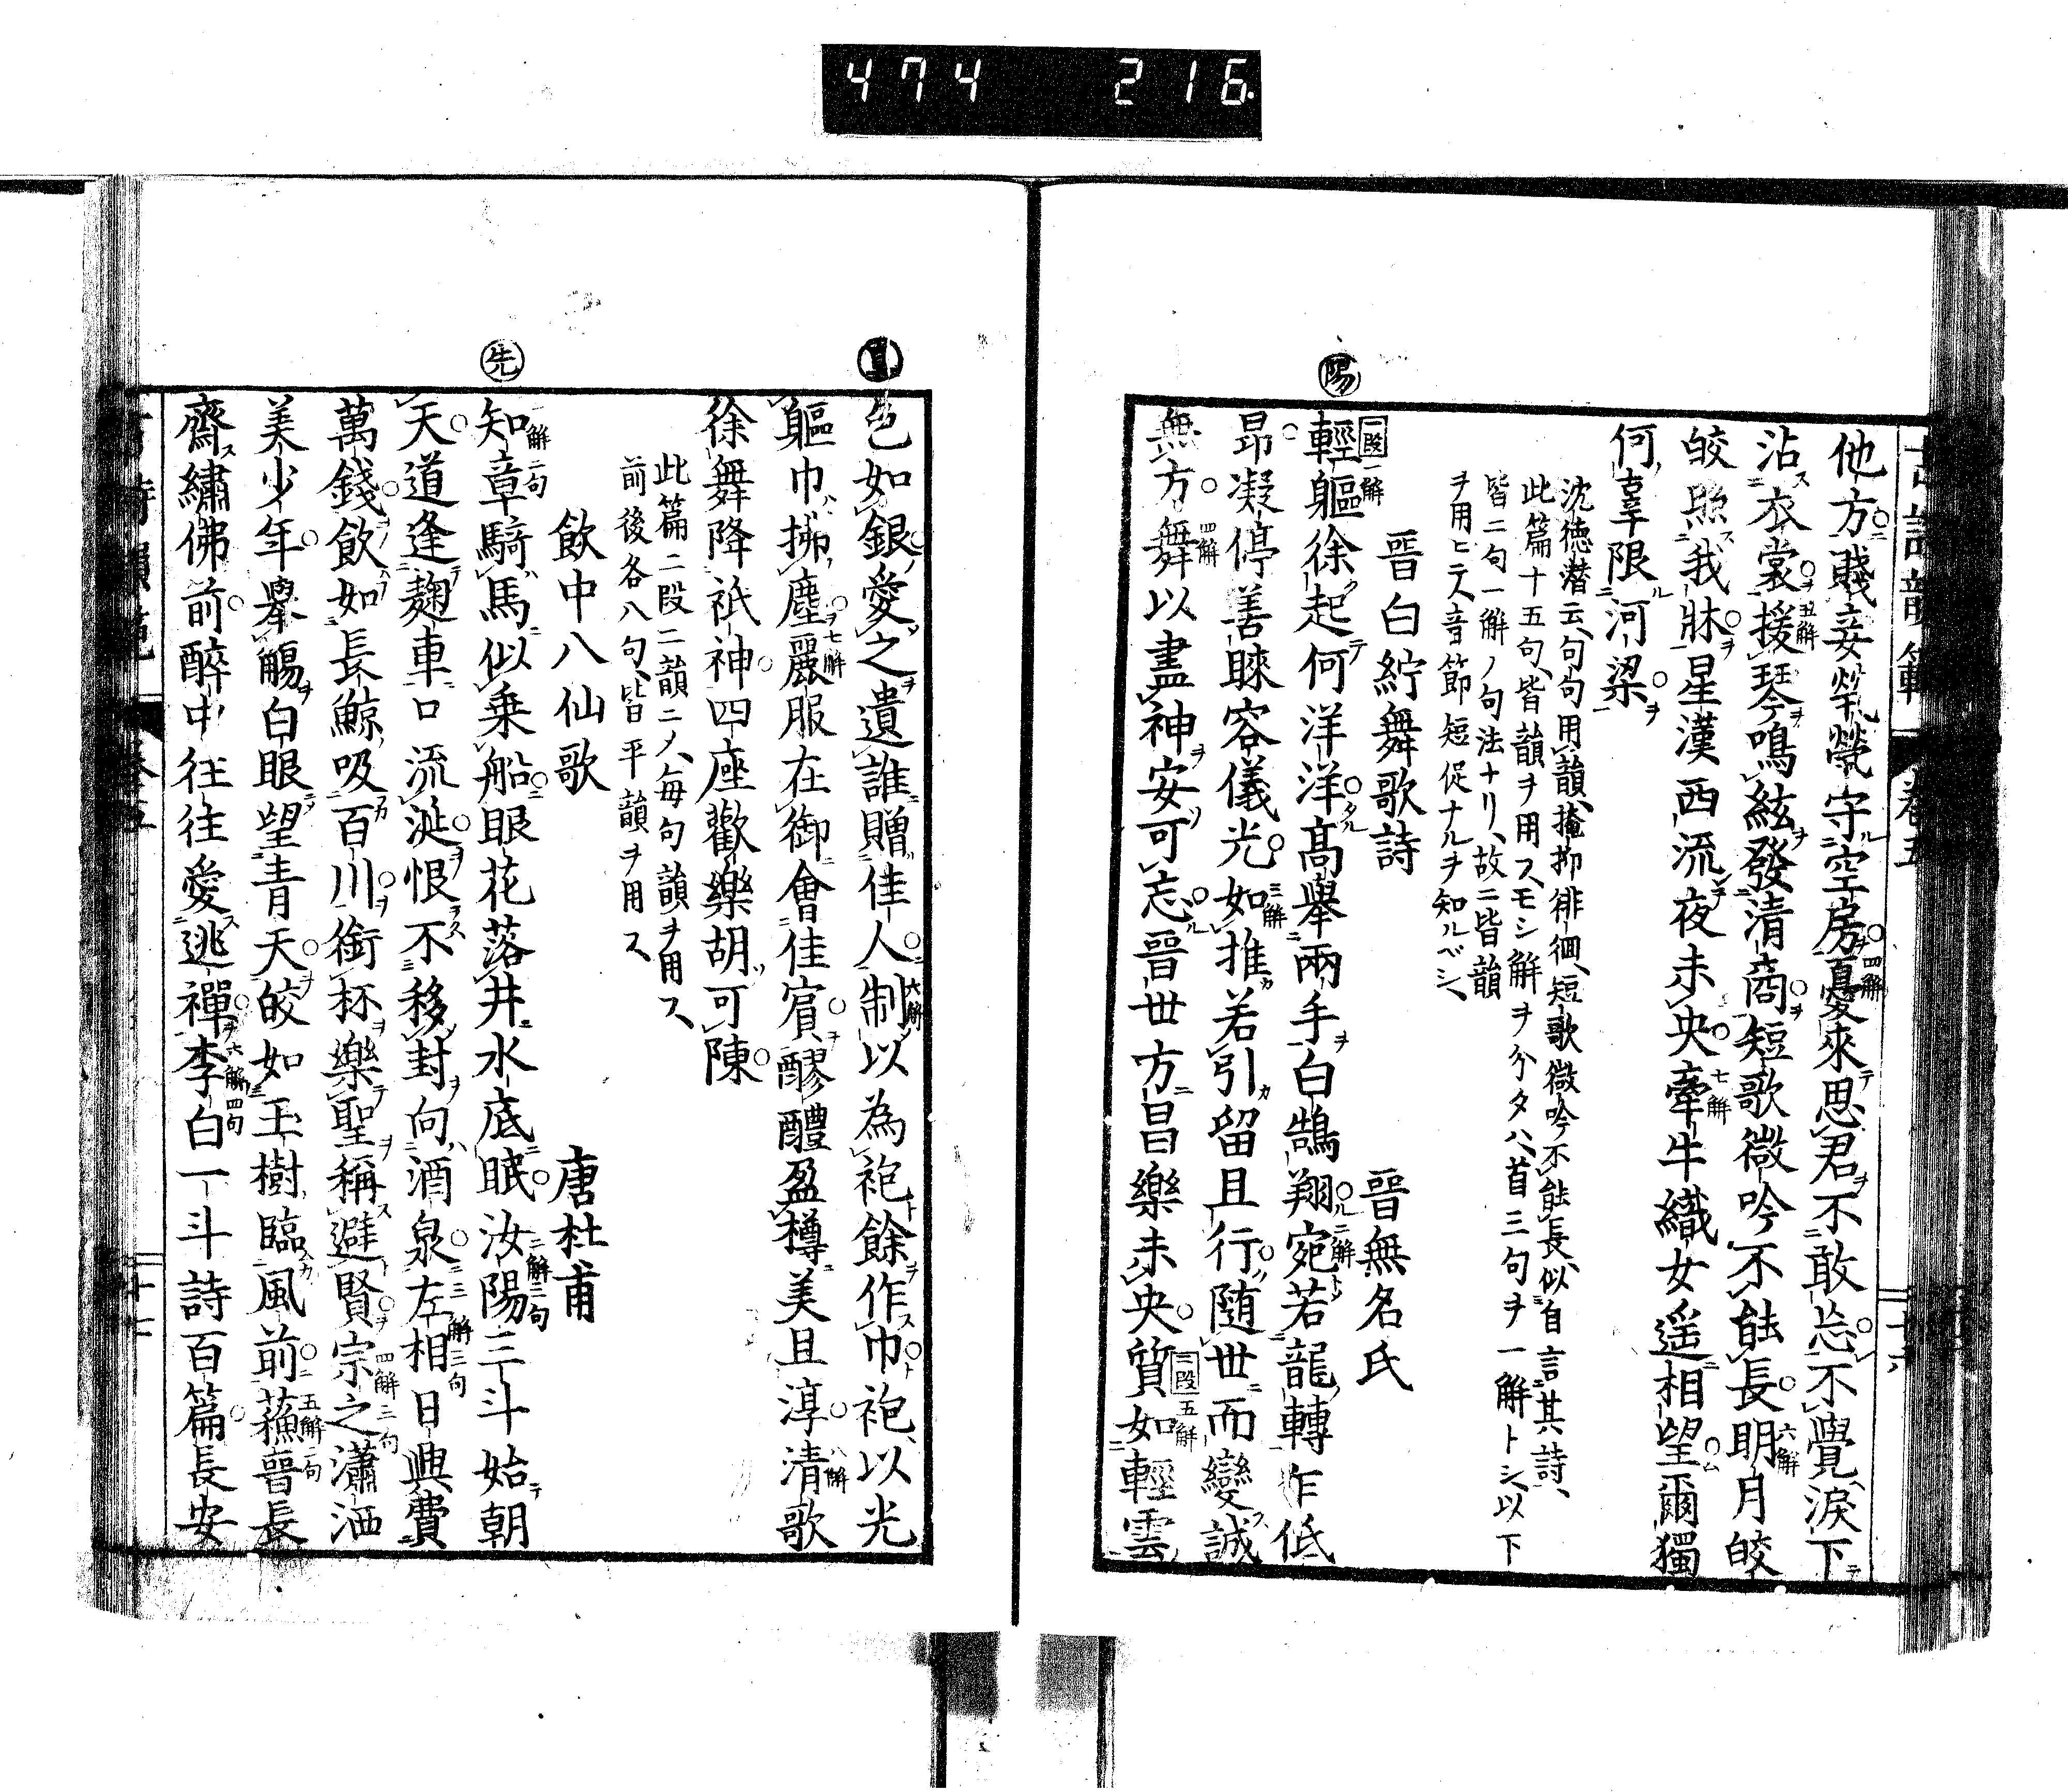 474 216
古詩韻範 卷五 十六
他方賤妾煢煢守空房憂來思君不敢忘不覺淚下
沾衣裳援琴鳴絃發清商短歌微吟不能長明月皎
皎照我牀星漢西流夜未央牽牛織女遥相望爾獨
何辜限河梁
沈徳潜云、句句用韻、掩抑徘徊、短歌微吟不能長、似自言其詩、
此篇十五句、皆韻ヲ用ス、モシ解ヲ分タハ、首三句ヲ一解トシ、以下
皆二句一解ノ句法ナリ、故ニ皆韻
ヲ用ヒテ、音節短促ナルヲ知ルベシ、
晉白紵舞歌詩 晉無名氏
陽
輕軀徐起何洋洋高舉兩手白鵠翔宛若龍轉乍低
昂凝停善睞容儀光如推若引留且行随世而變誠
無方舞以盡神安可忘晉世方昌樂未央質如輕雲
色如銀愛之遺誰贈佳人制以為袍餘作巾袍以光
軀巾拂塵麗服在御會佳賓醪醴盈樽美且淳清歌
徐舞降祇神四座歡樂胡可陳
此篇二段二韻ニノ、毎句韻ヲ用ス、
前後各八句、皆平韻ヲ用ス
飲中八仙歌 唐杜甫
先
知章騎馬似乗船眼花落井水底眠汝陽三斗始朝
天道逢麹車口流涎恨不移封向酒泉左相日興費
萬錢飲如長鯨吸百川銜杯樂聖稱避賢宗之瀟洒
美少年舉觴白眼望青天皎如玉樹臨風前蘓晉長
齋繡佛前醉中往往愛逃禪李白一斗詩百篇長安
十七